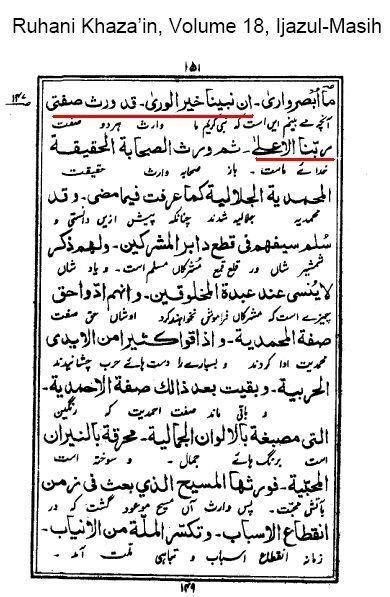 Ruhani Khaza'in, Volume 18, Ijazul-Masih
١٥١
١٤٧
ما أبصر وأرى۔ ان نبینا خیر الوریٰ۔ قد ورث صفتی
آنچه مے بینم این است که نبی کریم ما وارث هر دو صفت
ربّنا الاعلیٰ۔ ثم ورث الصحابة الحقیقة
خدائے ماست۔ باز صحابه وارث حقیقت
المحمدیة الجلالیة کما عرفت فیما مضیٰ۔ وقد
محمدیه جلالیه شدند چنانکه پیش ازین دانستی و
سُلّم سیفهم فی قطع دابر المشرکین۔ ولهم ذکر
شمشیر شان در قطع مشرکان مسلّم است۔ و یاد شان
لا یُنسٰی عند عبدة المخلوقین۔ وانهم ادّوا حق
چیزے است که مشرکان فراموش نخواهند کرد اوشان حق صفت
صفة المحمدیة۔ وأذاقوا کثیرا من الایدی
محمدیت ادا کردند و بسیارے را دست هائے حرب چشانیدند
الحربیة۔ وبقیت بعد ذالك صفة الاحمدیة۔
و باقی ماند صفت احمدیت که رنگین
التی مصبغة بالالوان الجمالیة۔ محرقة بالنیران
است برنگ هائے جمال۔ و سوخته است
المحبّیة۔ فورثها المسیح الذی بعث فی زمن
بآتش محبت۔ پس وارث آن مسیح موعود گشت که در
انقطاع الاسباب۔ وتکسّر الملّة من الانیاب۔
زمانه انقطاع اسباب و تباهی ملّت آمد۔
١٤٩